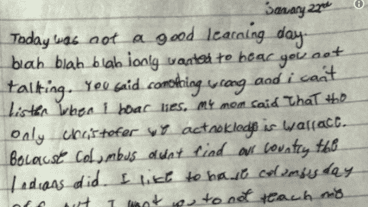 January 22nd
Today was not a good learning day.
blah blah blah i only wanted to hear you not
talking. You said something wrong and i can't
listen when I hear lies. My mom said That tho
only christofer we actnoklodg is wallace.
Because Columbus didnt find our country the
Indians did. I like to have columbus day
I want you to not teach me